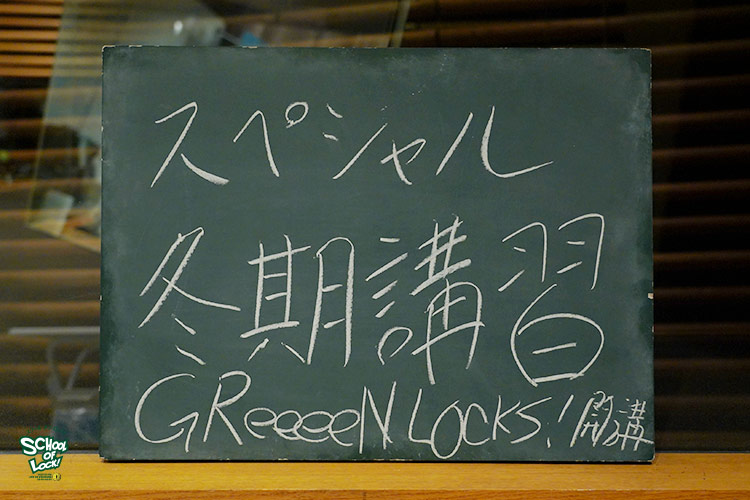 スペシャル
冬期講習
GReeeeN LOCKS! 開講
SCHOOL
OF
LOCK!